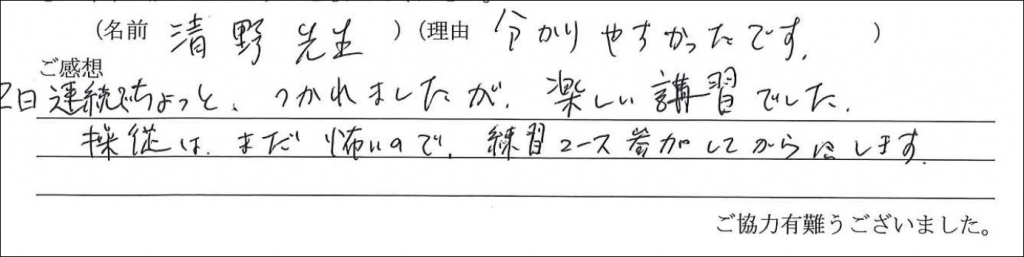 (名前 清野先生 ) (理由 分かりやすかったです. )
ご感想
2日連続でちょっと、つかれましたが、楽しい講習でした.
操従は、まだ怖いので、練習コース参加してからにします.
ご協力有難うございました。